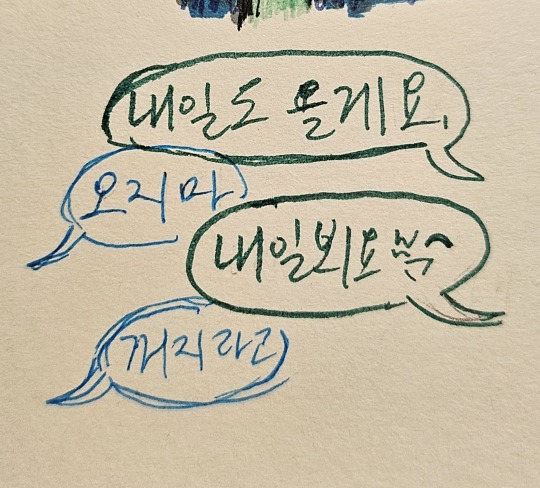 내일도 올게요.
오지 마
내일 뵈요 ^^
꺼지라고